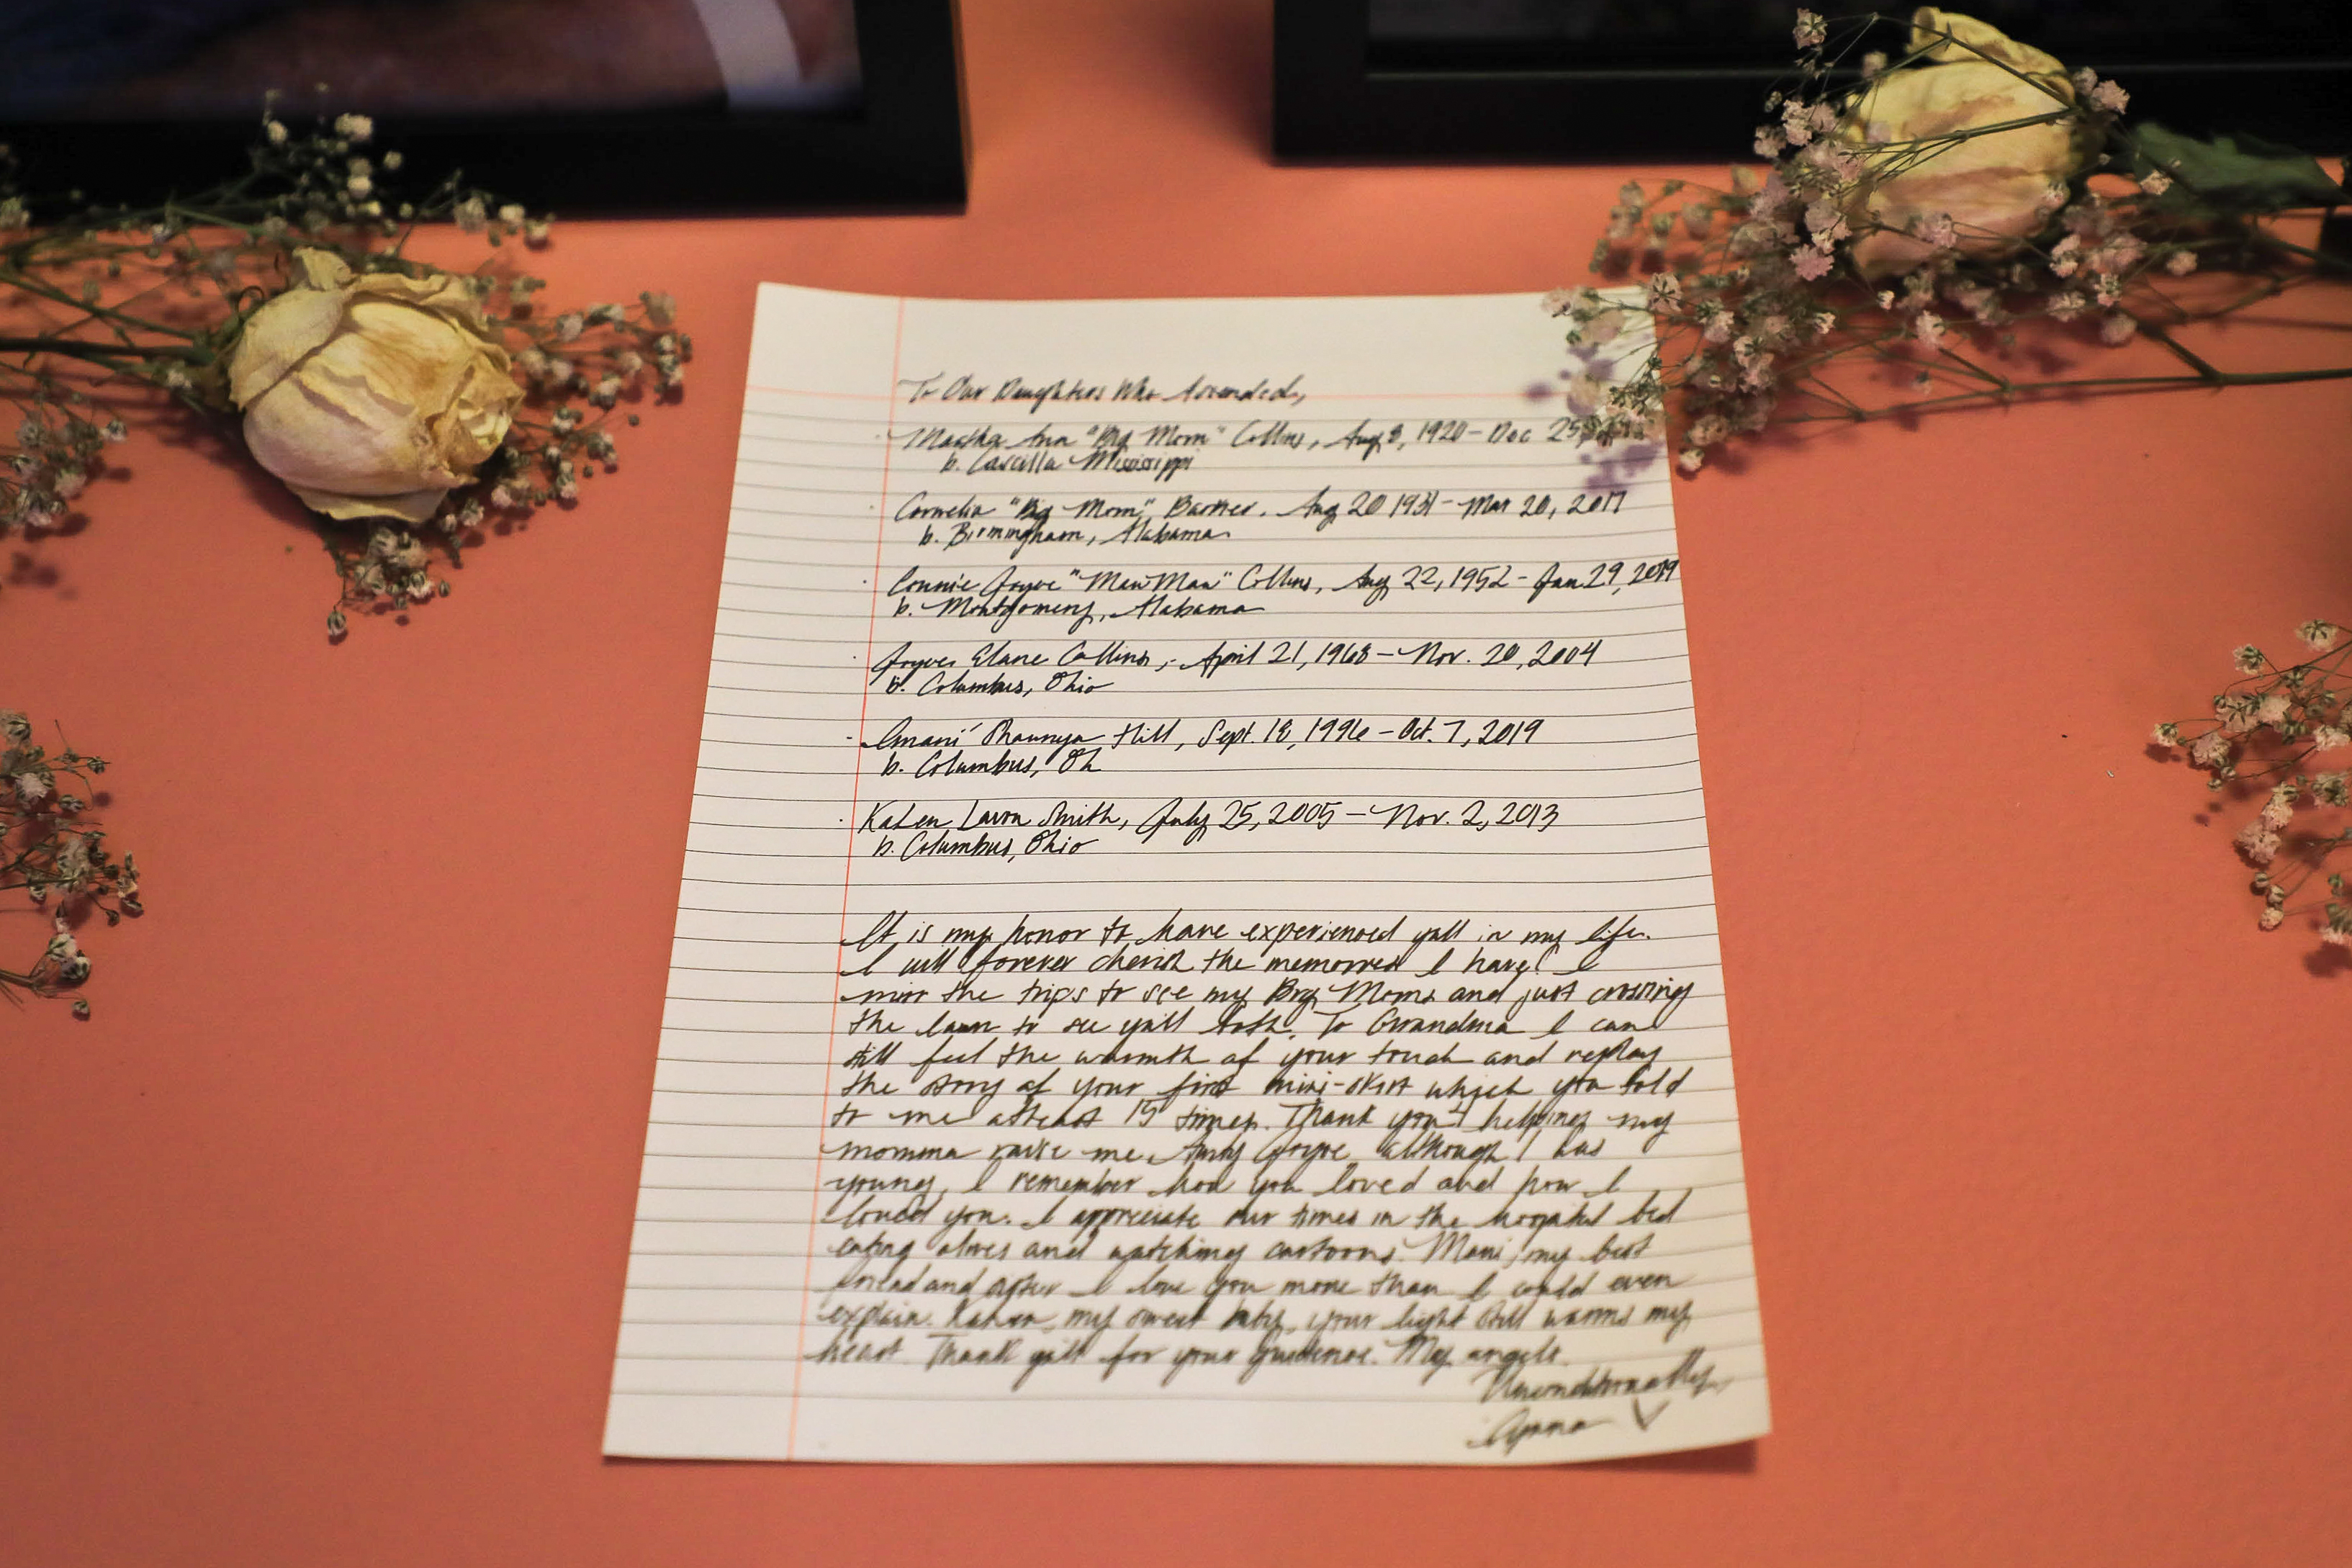 To Our Daughters Who Ascended,
Martha Ann "Big Mom" Collins, Aug 8, 1920 - Dec 25,
b. Cascilla Mississippi
Cornelia "Big Mom" Barker. Aug 20 1931 - Mar 20, 2017
b. Birmingham, Alabama
Connie Joyce "MawMaw" Collins, Aug 22, 1952 - Jan 29, 2019
b. Montgomery, Alabama
Joyce Elane Collins, - April 21, 1968 - Nov. 20, 2004
b. Columbus, Ohio
Imani Shaunya Hill, Sept. 18, 1996 - Oct. 7, 2019
b. Columbus, Oh
Kalen Lavon Smith, July 25, 2005 - Nov. 2, 2013
b. Columbus, Ohio
It is my honor to have experienced yall in my life.
I will forever cherish the memories I have! I
miss the trips to see my Big Moms and just crossing
the lawn to see yall both. To Grandma I can
still feel the warmth of your touch and replay
the story of your first mini-skirt which you told
to me atleast 15 times. Thank you 4 helping my
momma raise me. Anty Joyce, although I was
young, I remember how you loved and how I
loved you. I appreciate our times in the hospital bed
eating olives and watching cartoons. Mani, my best
friend and sister I love you more than I could even
explain. Kalen, my sweet baby, your light still warms my
heart. Thank yall for your guidence. My angels.
Unconditionally,